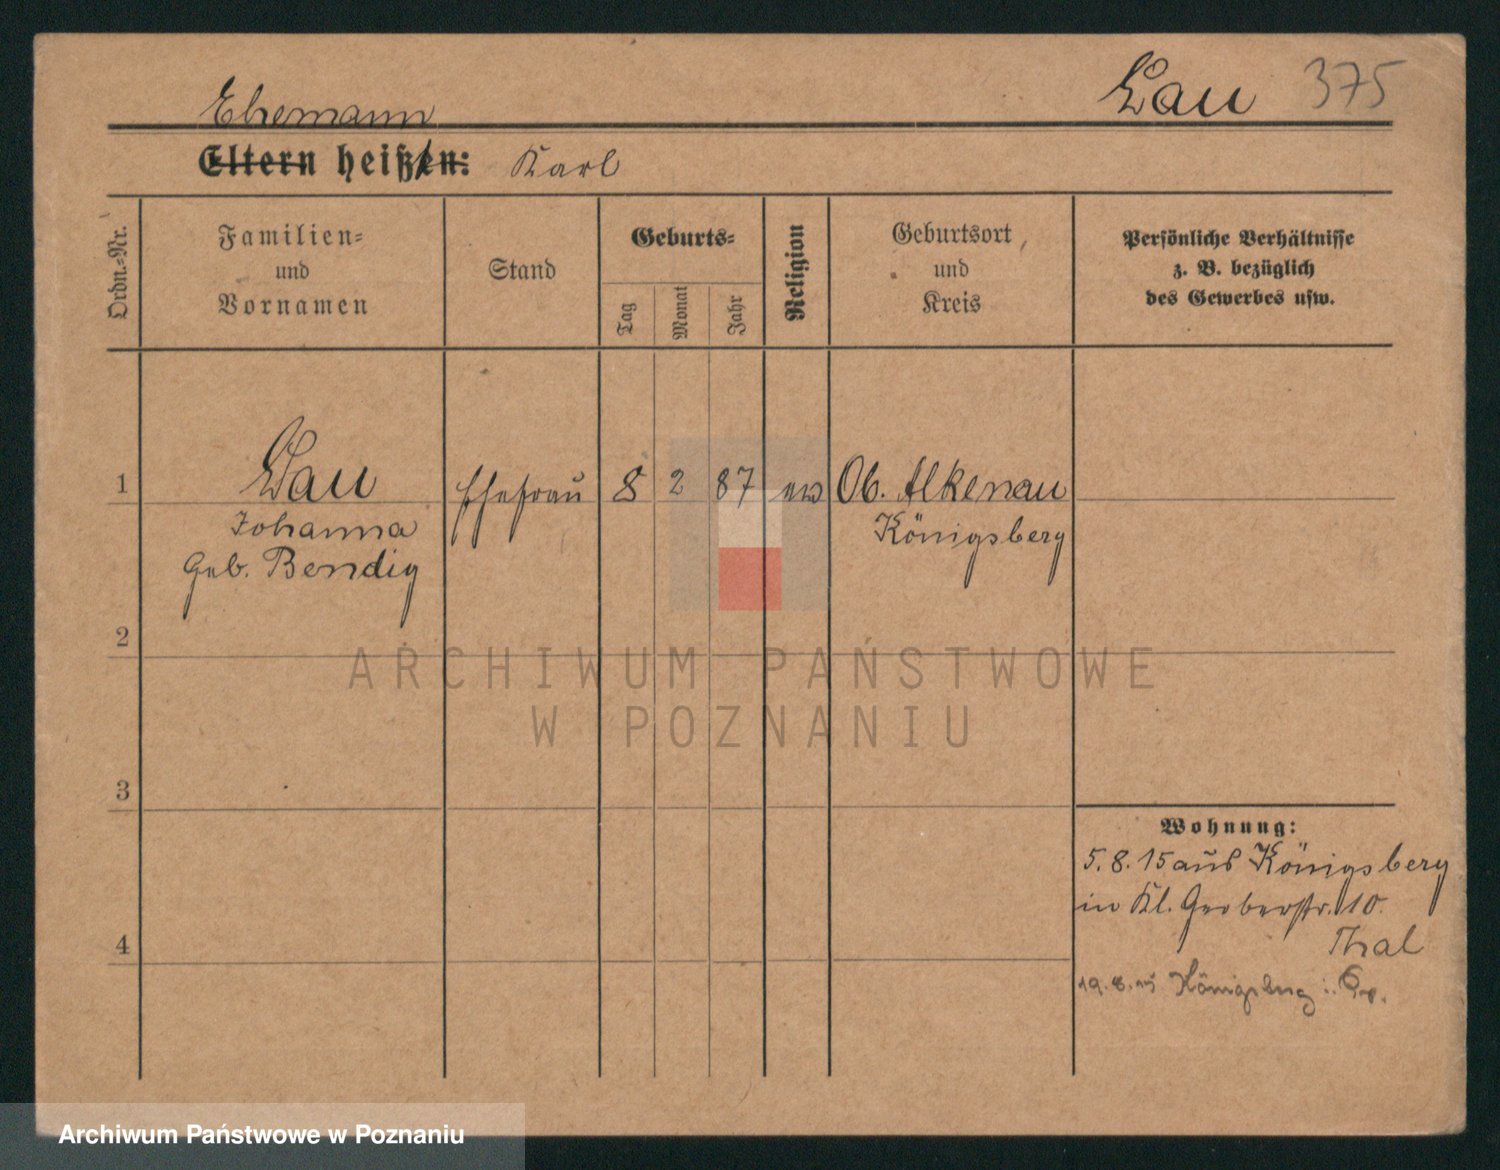 Lau 375
Ehemann
Eltern heißen: Karl
Ordn.=Nr.
Familien=
und
Vornamen
Stand
Geburts=
Tag
Monat
Jahr
Religion
Geburtsort
und
Kreis
Persönliche Verhältnisse
z. B. bezüglich
des Gewerbes usw.
1 Lau Ehefrau 8 2 87 ew Ob. Alkenau
Johanna Königsberg
geb. Bendig
2
ARCHIWUM PAŃSTWOWE
W POZNANIU
3
Wohnung:
5.8.15 aus Königsberg
in Kl. Gerberstr. 10.
Thal
4
19.8.15 Königsberg i. Pr.
Archiwum Państwowe w Poznaniu